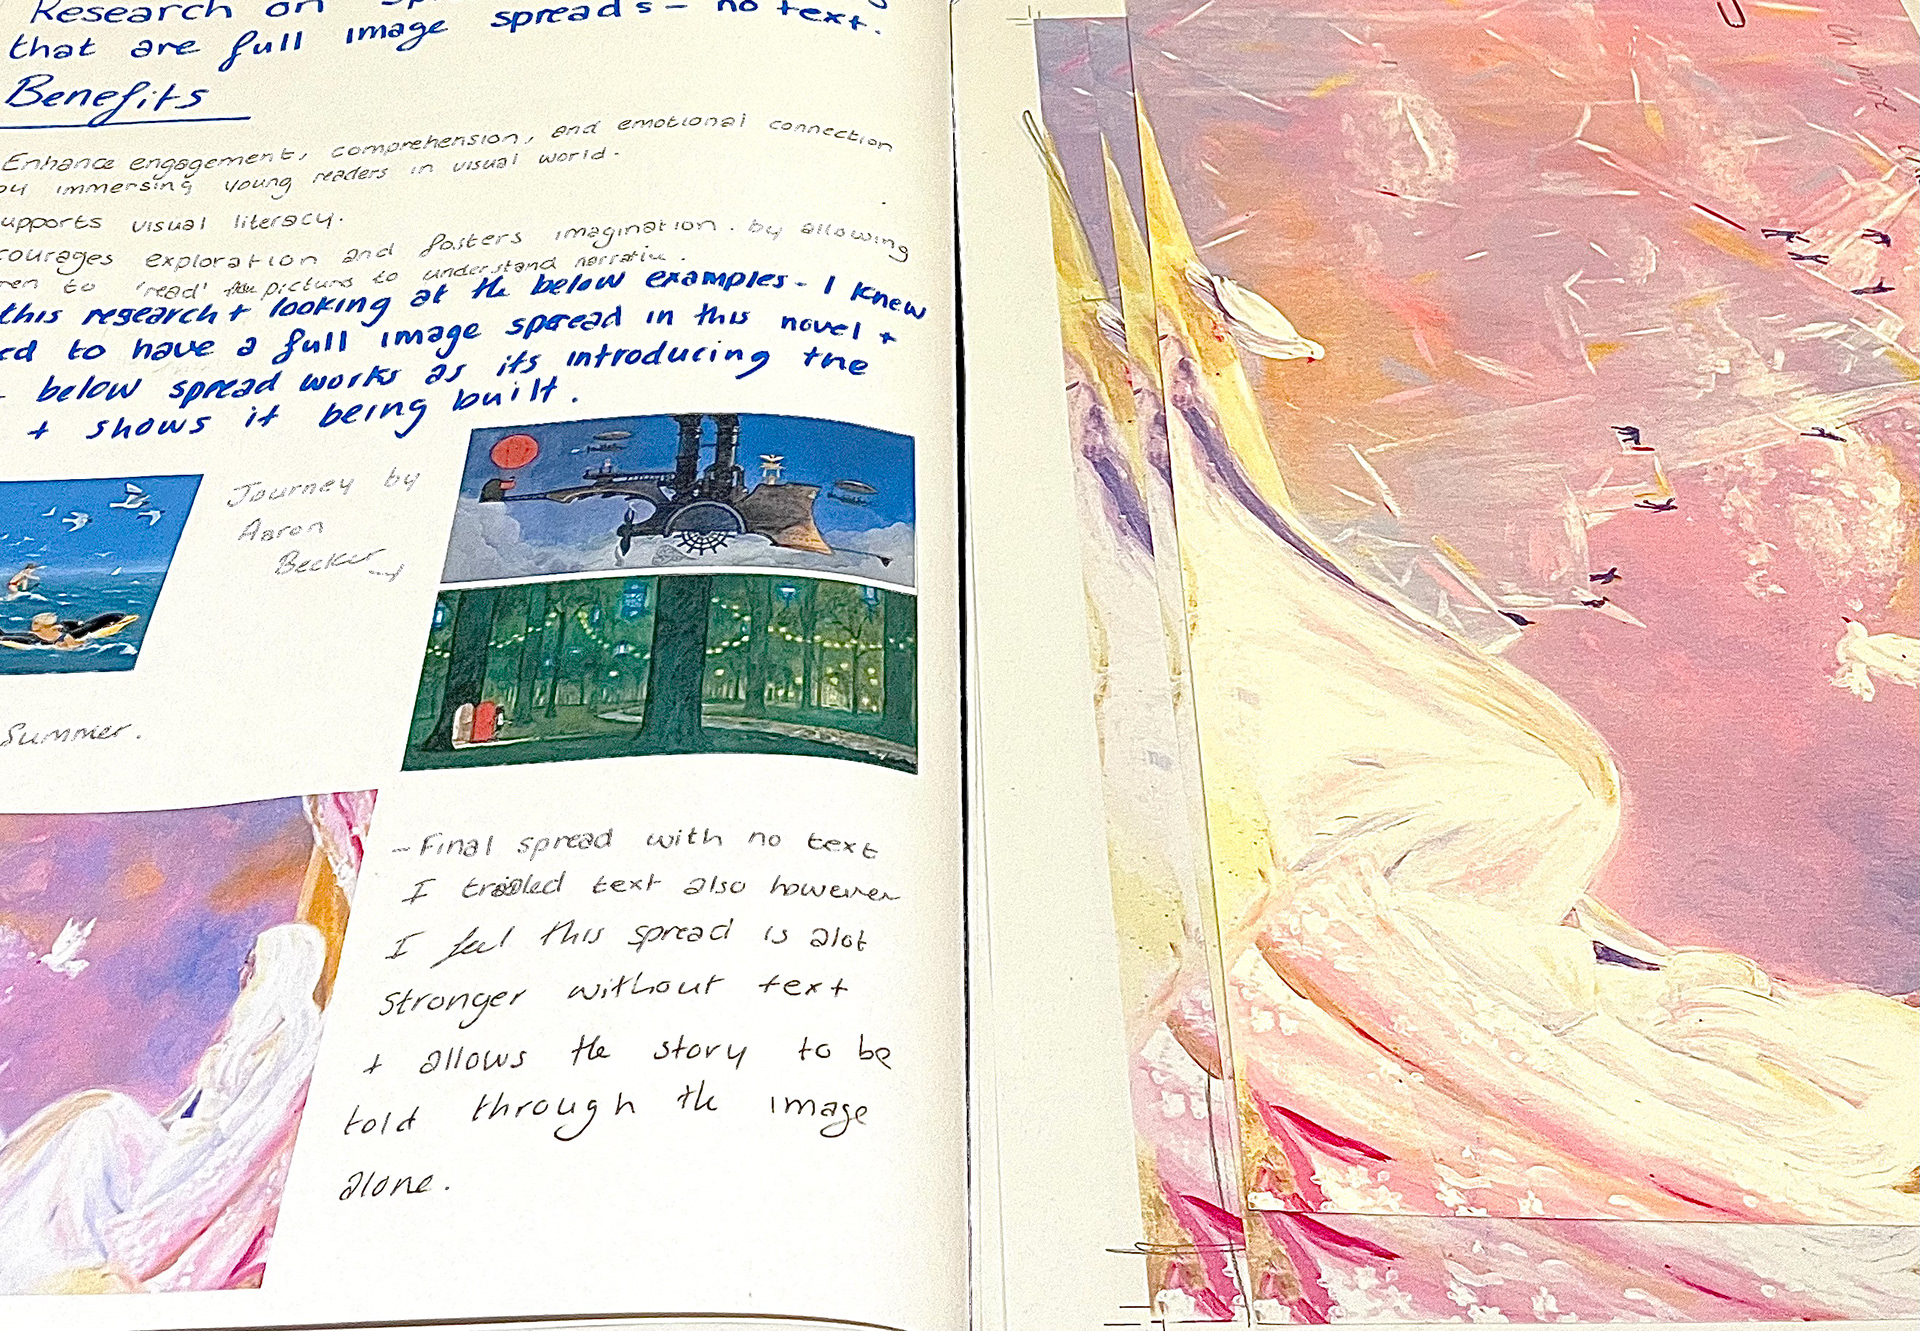 Research on
that are full image spreads - no text.
Benefits
Enhance engagement, comprehension, and emotional connection
by immersing young readers in visual world.
upports visual literacy.
courages exploration and fosters imagination. by allowing
ren to 'read' the picture to understand narrative.
this research + looking at the below examples - I knew
ed to have a full image spread in this novel +
below spread works as its introducing the
+ shows it being built.
Journey by
Aaron
Becker
Summer.
- Final spread with no text
I trialed text also however
I feel this spread is alot
stronger without text
+ allows the story to be
told through the image
alone.